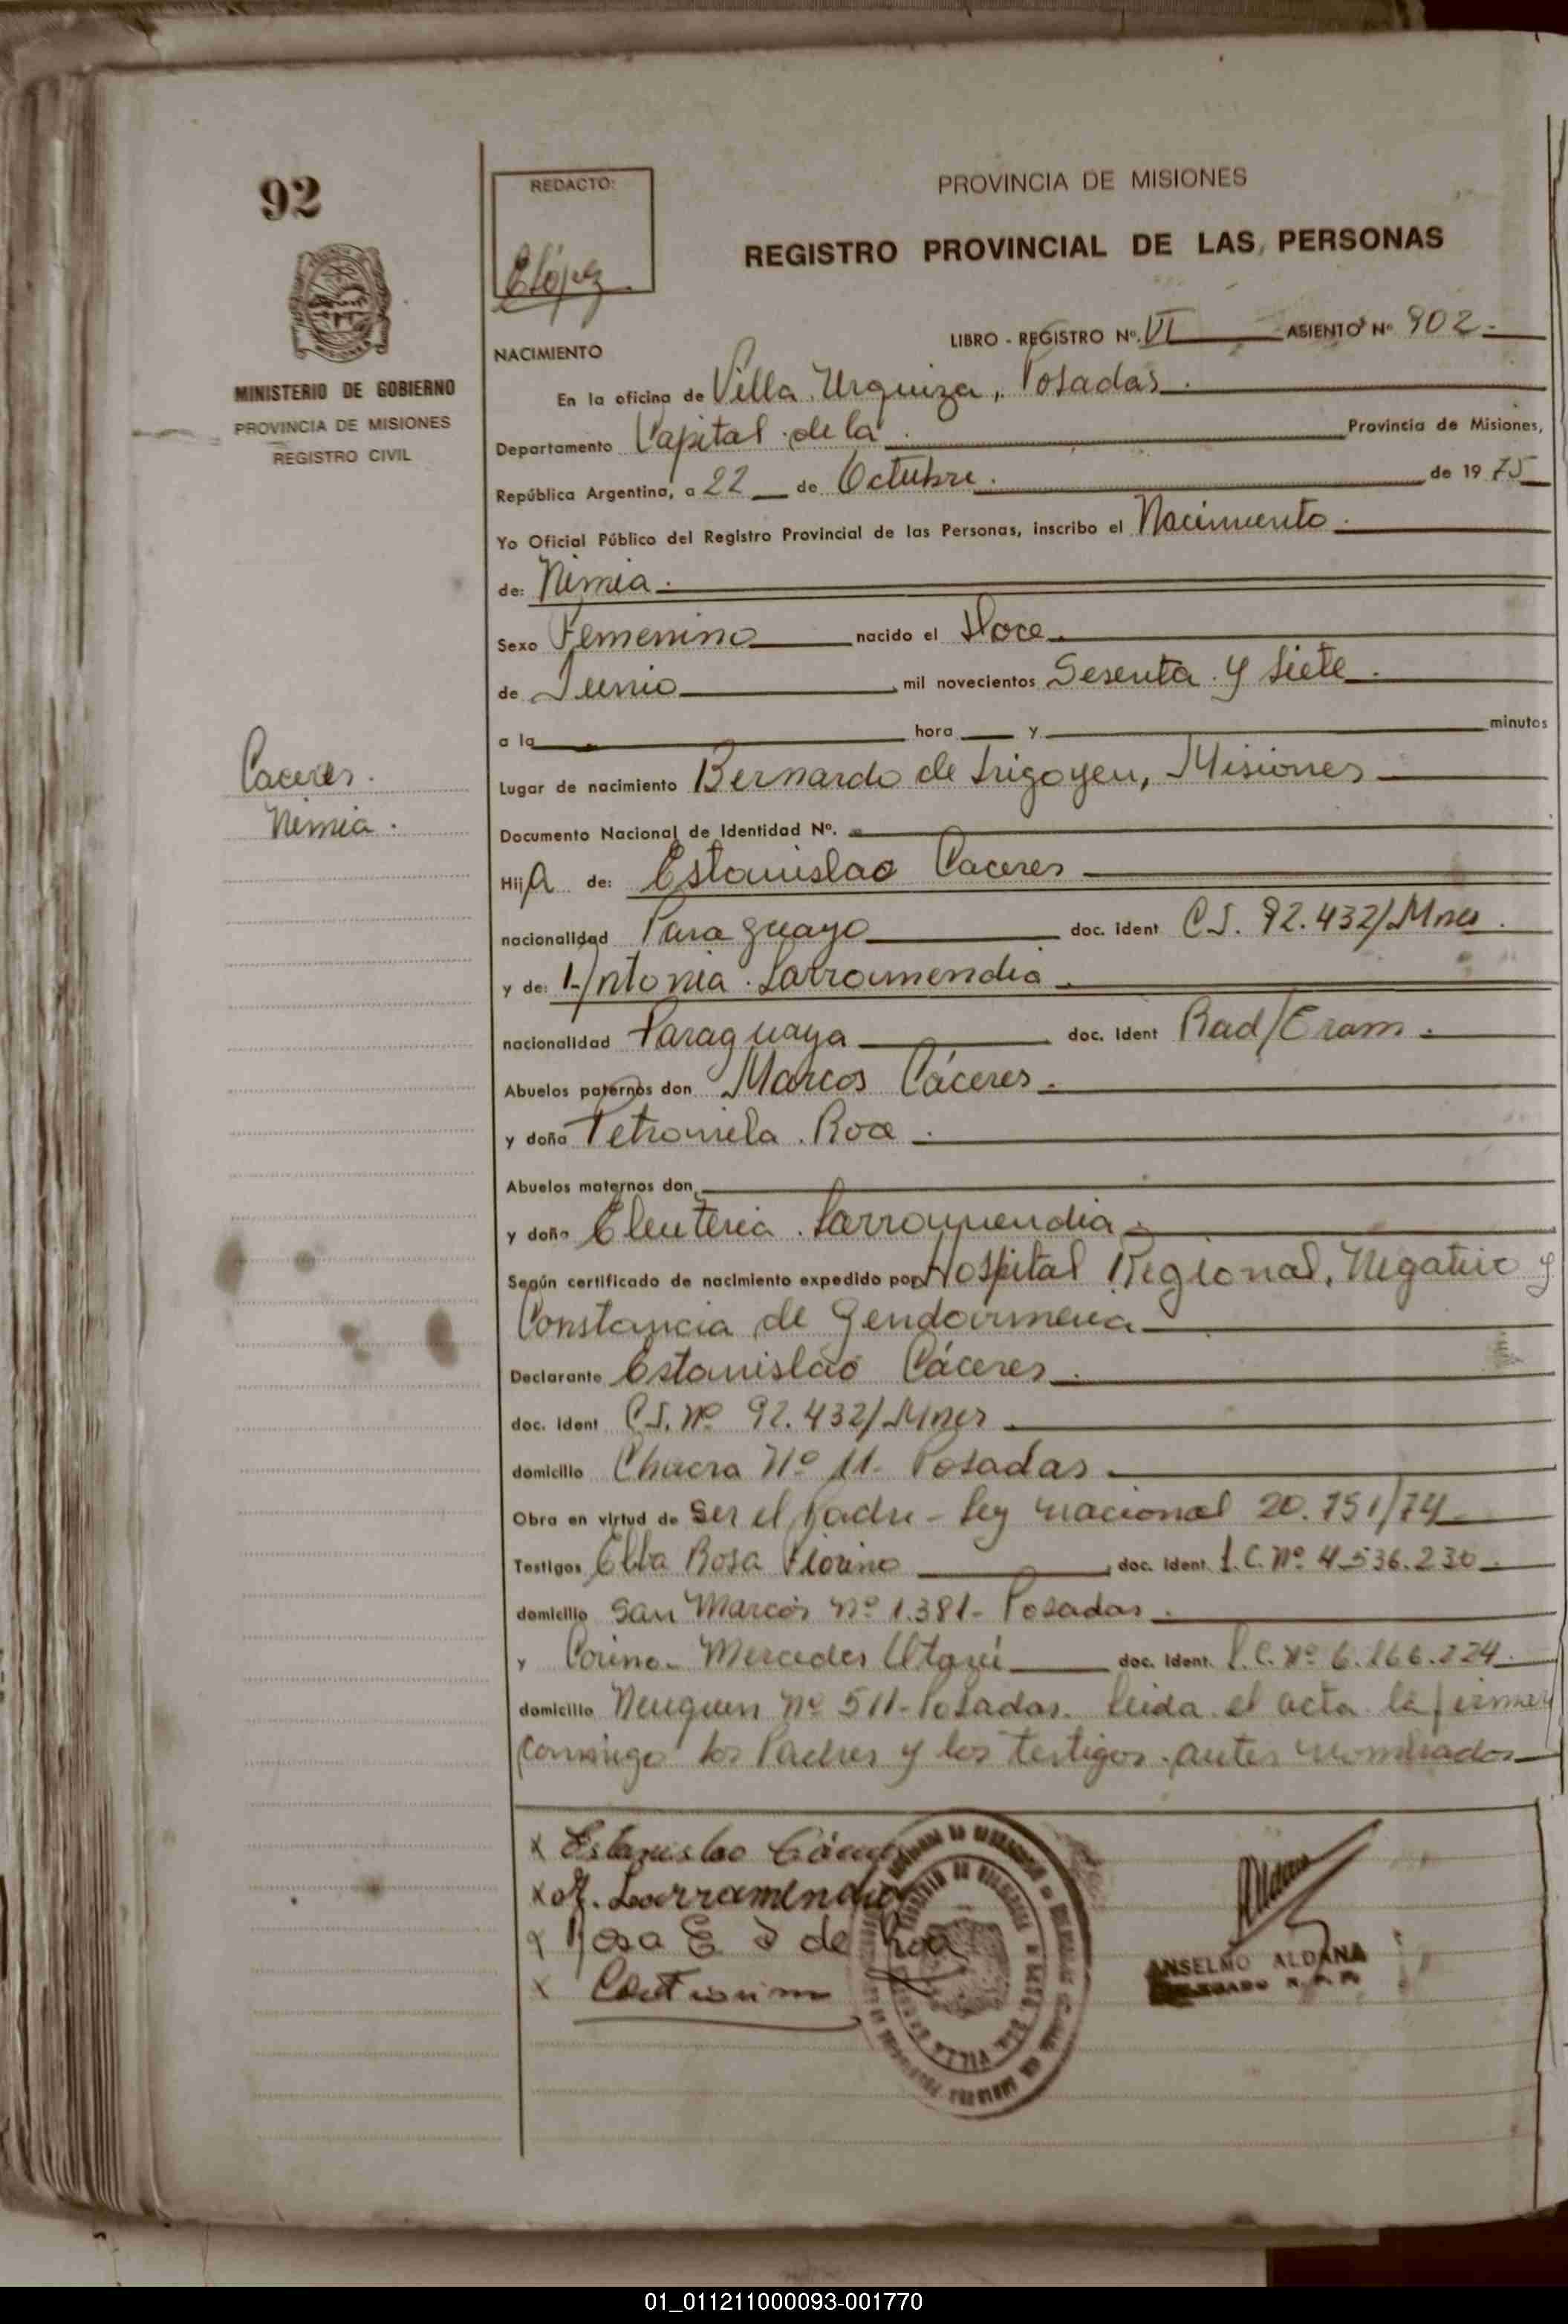 92
REDACTO:
PROVINCIA DE MISIONES
REGISTRO PROVINCIAL DE LAS PERSONAS
ELópez
LIBRO - REGISTRO Nº. VI ASIENTO Nº 902.
NACIMIENTO
MINISTERIO DE GOBIERNO
PROVINCIA DE MISIONES
REGISTRO CIVIL
En la oficina de Villa Urquiza, Posadas.
Departamento Capital de la. Provincia de Misiones,
República Argentina, a 22 de Octubre. de 1975
Yo Oficial Público del Registro Provincial de las Personas, inscribo el Nacimiento.
de: Nimia.
Sexo Femenino nacido el Doce.
de Junio mil novecientos Sesenta y Siete.
a la hora y minutos
Caceres.
Nimia.
Lugar de nacimiento Bernardo de Irigoyen, Misiones
Documento Nacional de Identidad Nº.
Hija de: Estanislao Caceres
nacionalidad Paraguayo doc. ident C.I. 92.432/Mnes.
y de: Antonia Larramendia.
nacionalidad Paraguaya doc. ident Rad/Tram.
Abuelos paternos don Marcos Cáceres.
y doña Petronila Roa.
Abuelos maternos don
y doña Eleuteria Larramendia.
Según certificado de nacimiento expedido por Hospital Regional, Negativo y
Constancia de Gendarmeria
Declarante Estanislao Cáceres.
doc. ident C.I. Nº 92.432/Mnes
domicilio Chacra Nº 11- Posadas
Obra en virtud de ser el Padre - Ley nacional 20.751/74
Testigos Elba Rosa Fiorino doc. ident. L.C. Nº 4.536.230.
domicilio San Marcos Nº 1.381- Posadas.
y Corina Mercedes Utazú doc. ident. L.C. Nº 6.166.224.
domicilio Neuquen Nº 511- Posadas. Leida el acta la firman
conmigo los Padres y los testigos antes nombrados
x Estanislao Cáceres
x A. Larramendia
x Rosa E de Roa
x
ANSELMO ALDANA
DELEGADO R. P. P.
01_011211000093-001770